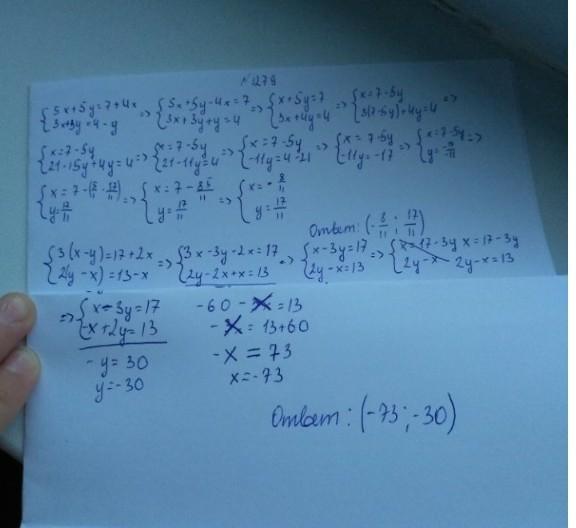 №1279
{5x+5y=7+4x 3x+3y=4-y => {5x+5y-4x=7 3x+3y+y=4 => {x+5y=7 3x+4y=4 => {x=7-5y 3(7-5y)+4y=4 =>
{x=7-5y 21-15y+4y=4 => {x=7-5y 21-11y=4 => {x=7-5y -11y=4-21 => {x=7-5y -11y=-17 => {x=7-5y =>
{y=17/11 => {x=7-85/11 y=17/11 => {x=-8/11 y=17/11
Ответ: (-8/11; 17/11)
{3(x-y)=17+2x 2(y-x)=13-x => {3x-3y-2x=17 2y-2x+x=13 => {x-3y=17 2y-x=13 => {x=17-3y x=17-3y 2y-x 2y-x=13
=> {x-3y=17 -x+2y=13
-y=30
y=-30
-60-x=13
-x=13+60
-x=73
x=-73
Ответ: (-73; -30)